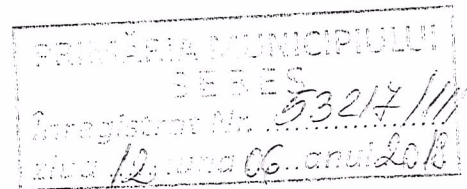 PRIMĂRIA MUNICIPIULUI
SEBEȘ
Înregistrat Nr. 53217/III/1
ziua 12 luna 06 anul 2018